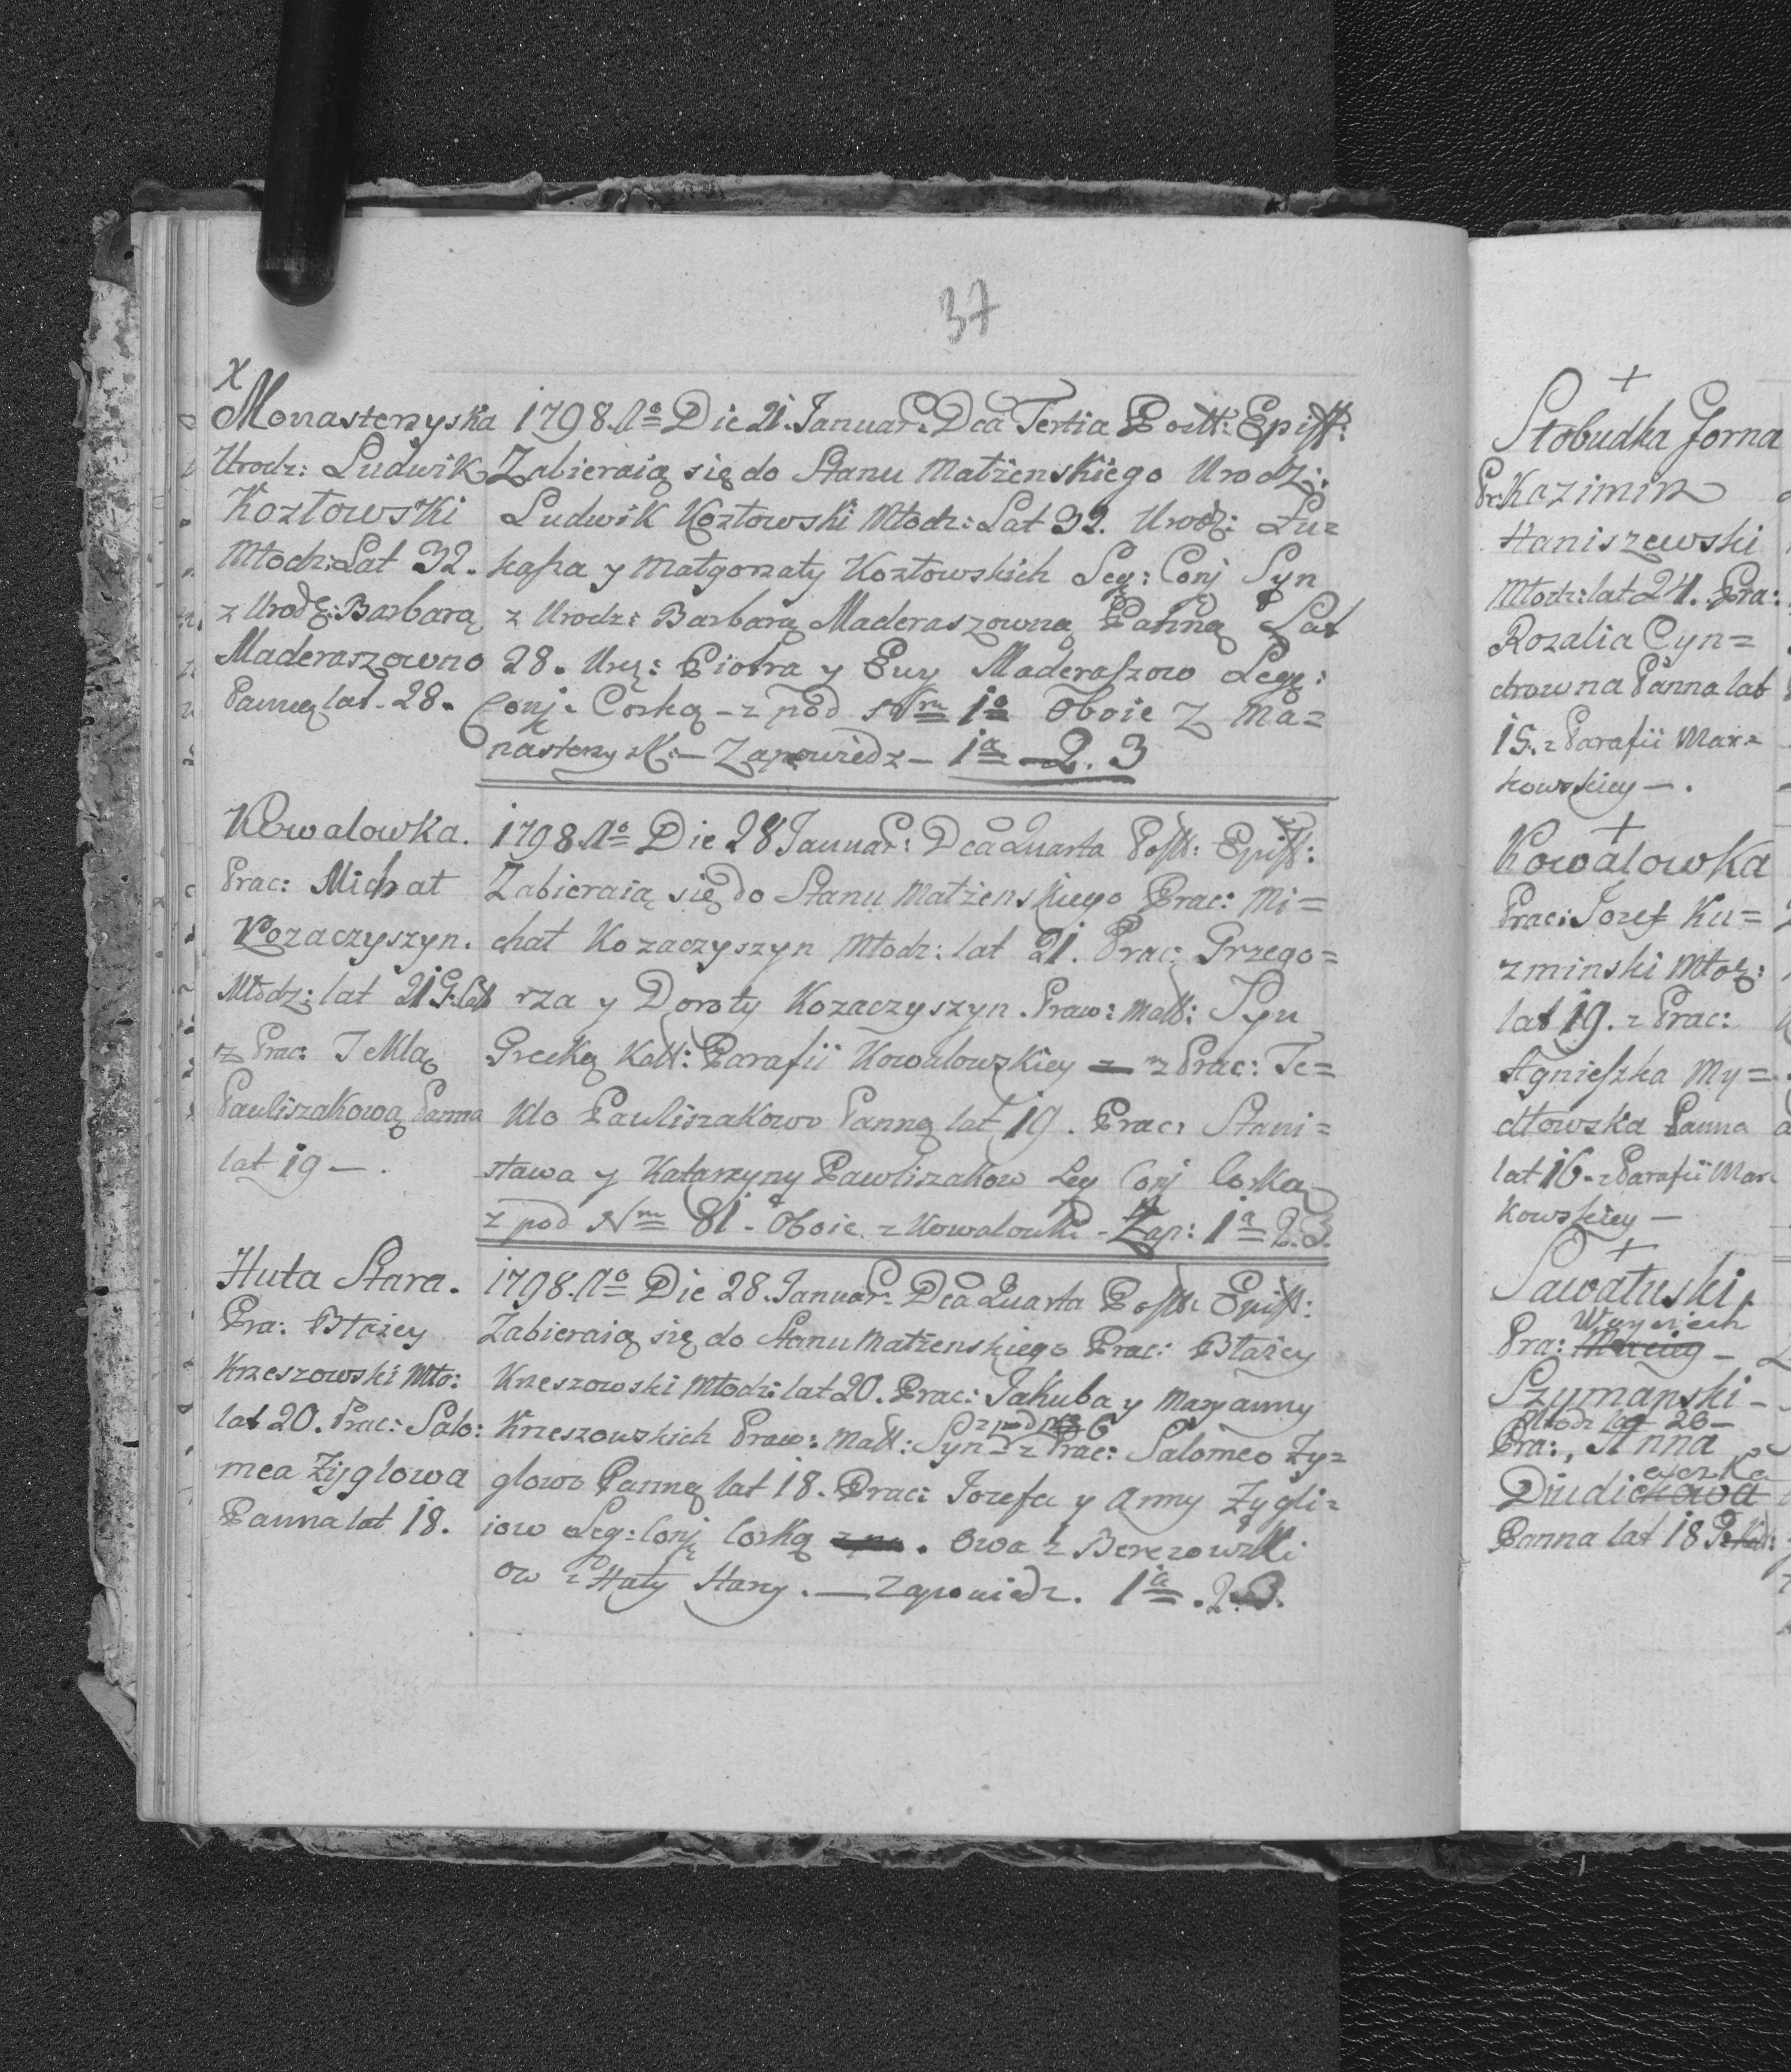 37
x
Monasterzyska
Urodz: Ludwik
Kozłowski
Młodz: Lat 32.
z Urodz: Barbarą
Maderaszowno
Panną lat - 28.
1798. Ao Die 21. Januar: Dca Tertia Postt: Epiff:
Zabieraią się do Stanu Matżenskiego Urodz:
Ludwik Kozłowski Młodz: Lat 32. Urodz: Łu=
kasza y Małgorzaty Kozłowskich Leg: Conj Syn
z Urodz: Barbarą Maderaszowną Panną Lat
28. Urz: Piotra y Ewy Maderaszow Leg:
Conj: Corką - z pod Nrm 1o Oboie z Ma=
nasterzysk: — Zapowiedz — 1a — 2. 3
Kowalowka.
Prac: Michał
Kozaczyszyn.
Młodz: lat 21 G: Cat
z Prac: Teklą
Pauliszakową Panna
lat 19 — .
1798. Ao Die 28 Januar: Dca Quarta Post: Epiff:
Zabieraią się do Stanu Matżenskiego Prac: Mi=
chał Kozaczyszyn Młodz: lat 21. Prac: Grzego=
rza y Doroty Kozaczyszyn. Praw: Matt: Syn
Grecką Katt: Parafii Kowalowskiey — z Prac: Te=
klo Pauliszakowo Panną lat 19. Prac: Stani=
sława y Katarzyny Pawliszakow Leg Conj Corką
z pod Nrm 81 - Oboie z Kowalowki - Zap: 1a 2. 3.
Huta Stara.
Pra: Błażey
Krzeszowski Mło:
lat 20. Prac: Salo:
mea Żyglowa
Panna lat 18.
1798. Ao Die 28. Januar: Dca Quarta Post: Epiff:
Zabieraią się do Stanu Matżenskiego Prac: Błażey
Krzeszowski Młodz: lat 20. Prac: Jakuba y Maryanny
z pod Nro 6
Krzeszowskich Praw: Matt: Syn z Prac: Salomeo Ży=
glowo Panną lat 18. Prac: Jozefa y Anny Żygli=
iow Leg: Conj Corką . Owa z Berezowki
ow z Huty Stary. — Zapowiedz. 1a . 2. 3.
+
Słobudka Jorna
Pr: Kazimirz
Haniszewski
Młodz: lat 24. Pra:
Rozalia Cyn=
drowna Panna lat
15. z Parafii Mar=
kowskiey — .
+
Kowalowka
Prac: Jozef Ku=
zminski Młoz:
lat 19. z Prac:
Agnieszka My=
dłowska Panna
lat 16. z Parafii Mar
kowskiey —
+
Sawałuski,
Woyciech
Pra:
Szymanski -
Młodz lat 26 -
Pra:, Anna
aczka
Diudickowa
Panna lat 18